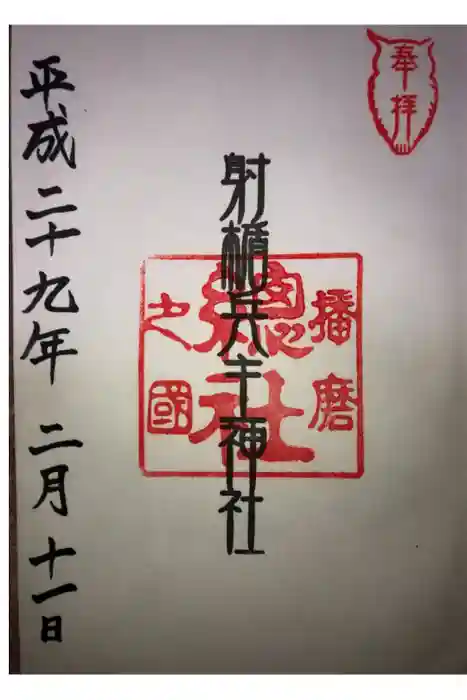 奉拝
射楯兵主神社
播磨
之國
総社
平成二十九年 二月 十一日